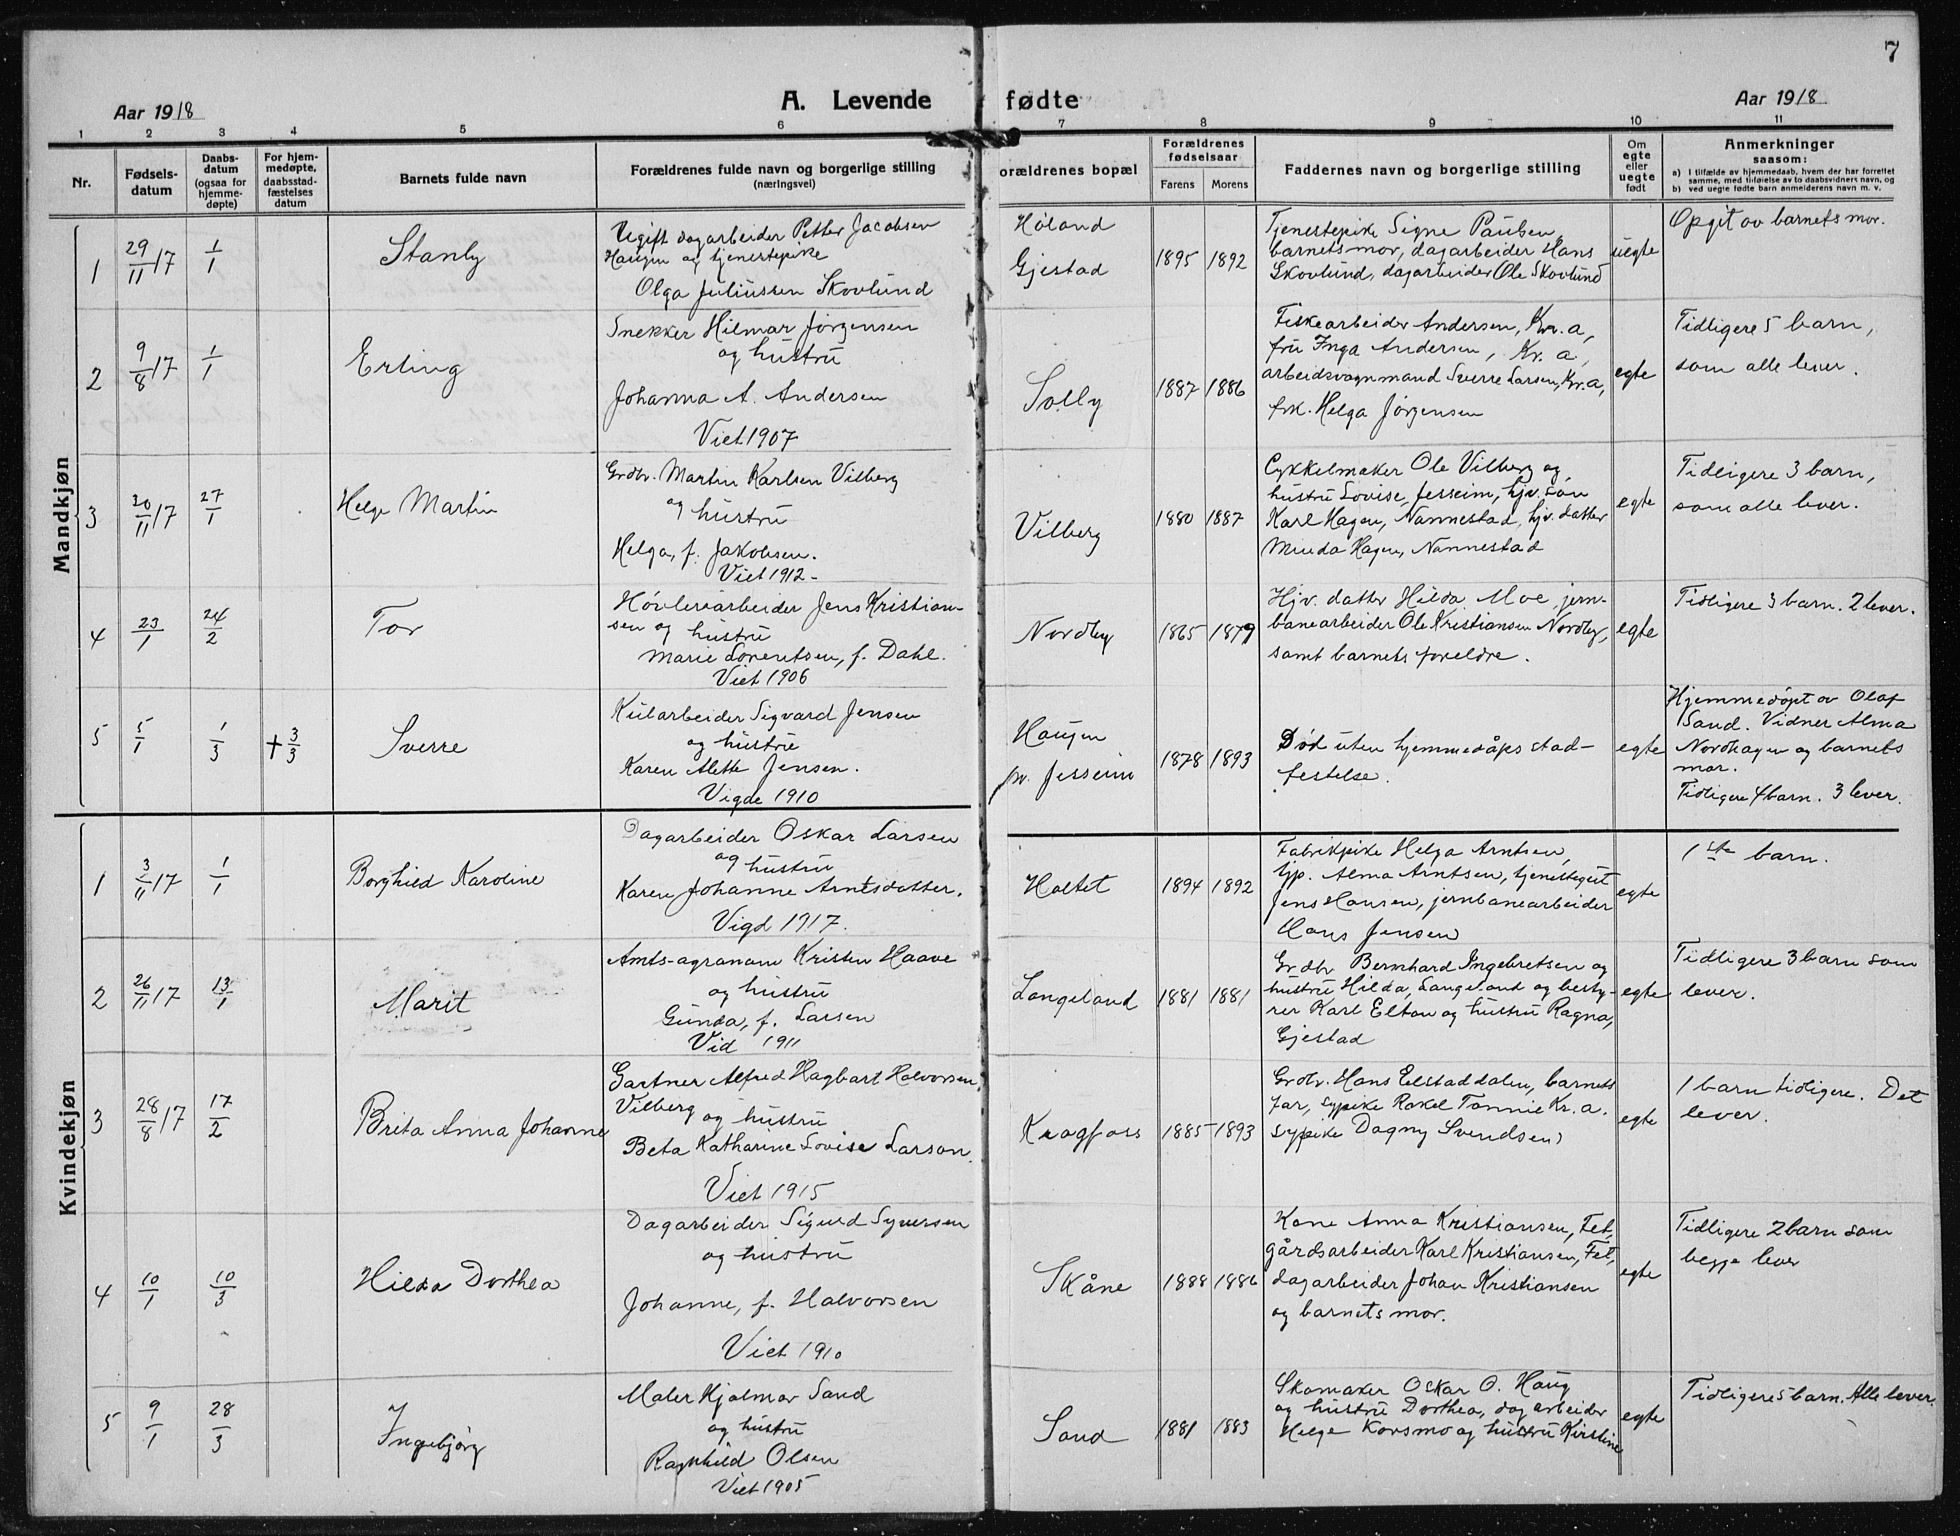 7
Aar 1918
A. Levende fødte
Aar 1918
1 2 3 4 5 6 7 8 9 10 11
Nr.
Fødsels-
datum
Daabs-
datum
(ogsaa for
hjemme-
døpte)
For hjem-
medøpte,
daabsstad-
fæstelses
datum
Barnets fulde navn
Forældrenes fulde navn og borgerlige stilling
(næringsvei)
orældrenes bopæl
Forældrenes
fødselsaar
Farens Morens
Faddernes navn og borgerlige stilling
Om
egte
eller
uegte
født
Anmerkninger
saasom:
a) I tilfælde av hjemmedaab, hvem der har forrettet
samme, med tilføielse av to daabsvidners navn, og
b) ved uegte fødte barn anmelderens navn m. v.
Mandkjøn
1 29/11 17 1/1 Stanly
Ugift dagarbeider Petter Jacobsen
Haugen og tjenestepike
Olga Juliussen Skovlund
Høland
Gjestad
1895 1892
Tjenestepike Signe Paulsen,
barnets mor, dagarbeider Hans
Skovlund, dagarbeider Ole Skovlund
uegte
Opgit av barnets mor.
2 9/8 17 1/1 Erling
Snekker Hilmar Jørgensen
og hustru
Johanna A. Andersen
Viet 1907
Solly
1887 1886
Fiskearbeider Andersen, Kr.a,
fru Inga Andersen, Kr.a,
arbeidsvognmand Sverre Larsen, Kr.a,
frk. Helga Jørgensen
egte
Tidligere 5 barn,
som alle lever.
3 30/11 17 27/1 Helge Martin
Grdbr. Martin Karlsen Vilberg
og hustru
Helga, f. Jakobsen.
Viet 1912-
Vilberg
1880 1887
Cykkelmaker Ole Vilberg og
hustru Lovise, Jesseim, hjv. søn
Karl Hagen, Nannestad, hjv. datter
Minda Hagen, Nannestad
egte
Tidligere 3 barn,
som alle lever.
4 23/1 24/2 Tor
Høvleriarbeider Jens Kristian-
sen og hustru
Marie Lorentsen, f. Dahl.
Viet 1906
Nordby
1865 1879
Hjv. datter Hilda Moe, jern-
banearbeider Ole Kristiansen Nordby,
samt barnets foreldre.
egte
Tidligere 3 barn. 2 lever.
5 5/1 1/3 + 3/3 Sverre
Kularbeider Sigvard Jensen
og hustru
Karen Alette Jensen.
Vigde 1910
Haugen
pr. Jesseim
1878 1893
Død uten hjemmedåps stad-
festelse.
egte
Hjemmedøpt av Olaf
Sand. Vidner Alma
Nordhagen og barnets
mor.
Tidligere 4 barn. 3 lever.
Kvindekjøn
1 3/11 17 1/1 Borghild Karoline
Dagarbeider Oskar Larsen
og hustru
Karen Johanne Arntsdatter.
Vigd 1917.
Holtet
1894 1892
Fabrikpike Helga Arntsen,
tjp. Alma Arntsen, tjenestegut
Jens Hansen, jernbanearbeider
Hans Jensen
egte
1ste barn.
2 26/11 17 13/1 Marit
Amts-agronom Kristen Haave
og hustru
Gunda, f. Larsen
Vid 1911
Langeland
1881 1881
Grdbr Bernhard Ingebretsen og
hustru Hilda, Langeland og besty-
rer Karl Elton og hustru Ragna,
Gjestad
egte
Tidligere 3 barn som
lever.
3 28/8 17 17/2 Brita Anna Johanne
Gartner Alfred Hagbart Halvorsen
Vilberg og hustru
Beta Katharine Lovise Larson.
Viet 1915
Kragfoss
1885 1893
Grdbr. Hans Eilstaddalen, barnets
far, sypike Rakel Tonnie Kr.a.
sypike Dagny Svendsen
egte
1 barn tidligere. Det
lever.
4 10/1 10/3 Hilda Dorthea
Dagarbeider Sigurd Syversen
og hustru
Johanne, f. Halvorsen
Viet 1910
Skåne
1888 1886
Kone Anna Kristiansen, Fet,
gårdsarbeider Karl Kristiansen, Fet,
dagarbeider Johan Kristiansen
og barnets mor.
egte
Tidligere 2 barn som
begge lever
5 9/1 28/3 Ingebjørg
Maler Hjalmar Sand
og hustru
Ragnhild Olsen
Viet 1905
Sand
1881 1883
Skomaker Oskar O. Haug
og hustru Dorthea, dagarbeider
Helge Korsmo og hustru Kirstine
egte
Tidligere 5 barn. Alle lever.